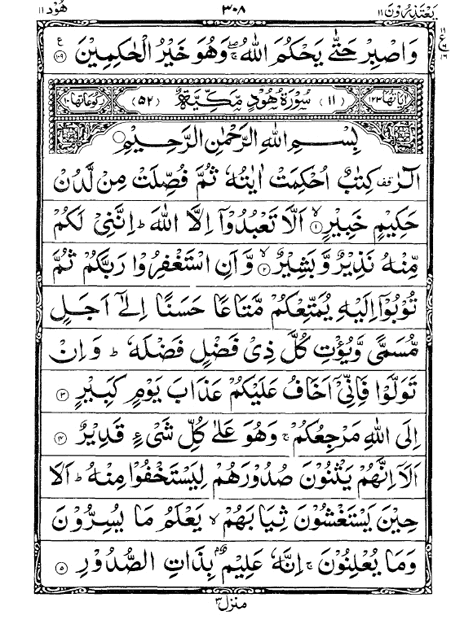 یعتذرون ۱۱ ۳۰۸ ھود ۱۱
وَاصْبِرْ حَتّٰى يَحْكُمَ اللّٰهُ ۚ وَهُوَ خَيْرُ الْحٰكِمِيْنَ ۝۱۰۹
اٰيَاتُهَا ۱۲۳ (۱۱) سُوْرَةُ هُوْدٍ مَّكِّيَّةٌ (۵۲) رُكُوْعَاتُهَا ۱۰
بِسْمِ اللّٰهِ الرَّحْمٰنِ الرَّحِيْمِ ۝
الٓرٰ ۫ كِتٰبٌ اُحْكِمَتْ اٰيٰتُهٗ ثُمَّ فُصِّلَتْ مِنْ لَّدُنْ
حَكِيْمٍ خَبِيْرٍ ۝۱ اَلَّا تَعْبُدُوْۤا اِلَّا اللّٰهَ ؕ اِنَّنِيْ لَكُمْ
مِّنْهُ نَذِيْرٌ وَّبَشِيْرٌ ۝۲ وَّاَنِ اسْتَغْفِرُوْا رَبَّكُمْ ثُمَّ
تُوْبُوْۤا اِلَيْهِ يُمَتِّعْكُمْ مَّتَاعًا حَسَنًا اِلٰۤى اَجَلٍ
مُّسَمًّى وَّيُؤْتِ كُلَّ ذِيْ فَضْلٍ فَضْلَهٗ ؕ وَاِنْ
تَوَلَّوْا فَاِنِّيْۤ اَخَافُ عَلَيْكُمْ عَذَابَ يَوْمٍ كَبِيْرٍ ۝۳
اِلَى اللّٰهِ مَرْجِعُكُمْ ۚ وَهُوَ عَلٰى كُلِّ شَيْءٍ قَدِيْرٌ ۝۴
اَلَاۤ اِنَّهُمْ يَثْنُوْنَ صُدُوْرَهُمْ لِيَسْتَخْفُوْا مِنْهُ ؕ اَلَا
حِيْنَ يَسْتَغْشُوْنَ ثِيَابَهُمْ ۙ يَعْلَمُ مَا يُسِرُّوْنَ
وَمَا يُعْلِنُوْنَ ۚ اِنَّهٗ عَلِيْمٌۢ بِذَاتِ الصُّدُوْرِ ۝۵
منزل ۳